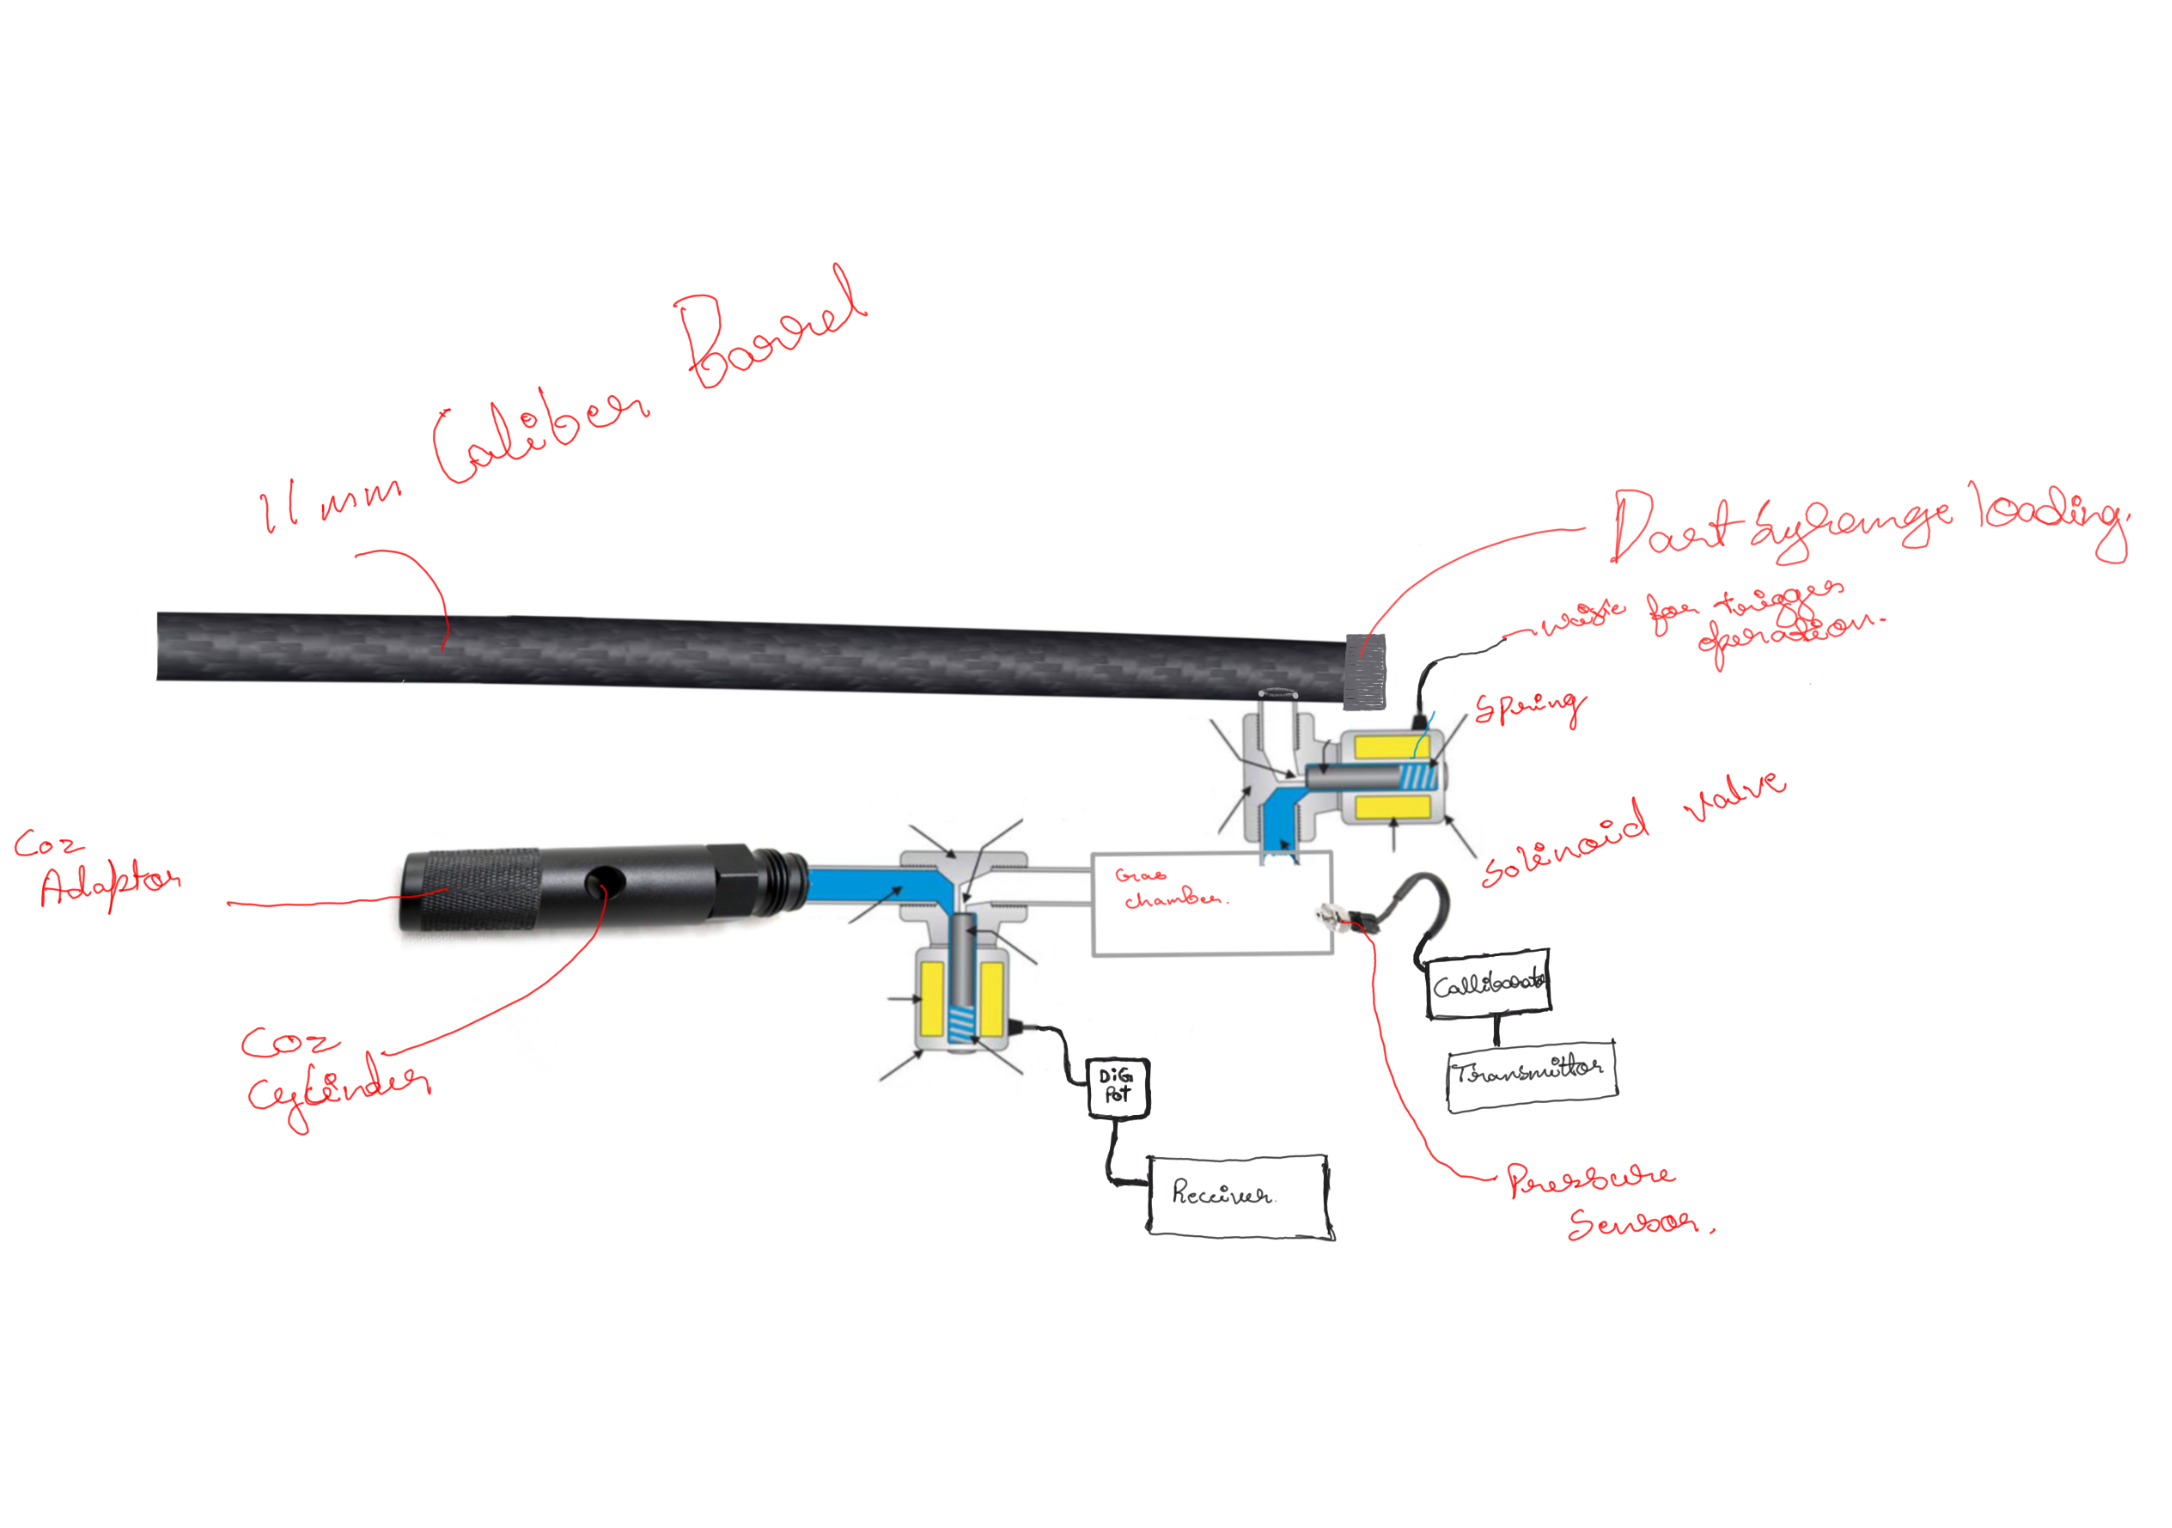 11 mm Caliber Barrel
Dart Syrange loading.
wire for trigger
operation.
Spring
Solinoid valve
Co2
Adaptor
Gas
chamber.
Calliborate
Transmittor
Co2
Cylinder
DiG
Pot
Receiver.
Pressure
Sensor.